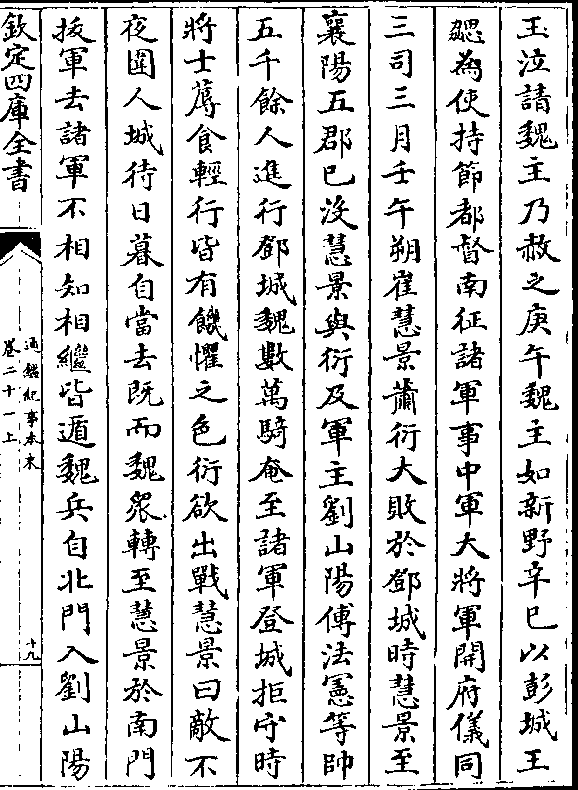 玉泣請魏主乃赦之庚午魏主如新野辛巳以彭城王
勰為使持節都督南征諸軍事中軍大將軍開府儀同
三司三月壬午朔崔慧景蕭衍大敗於鄧城時慧景至
襄陽五郡已没慧景與衍及軍主劉山陽傅法憲等帥
五千餘人進行鄧城魏數萬騎奄至諸軍登城拒守時
將士蓐食輕行皆有饑懼之色衍欲出戰慧景曰敵不
夜圍人城待日暮自當去既而魏衆轉至慧景於南門
拔軍去諸軍不相知相繼皆遁魏兵自北門入劉山陽
欽定四庫全書
通鑑紀事本末
卷二十一上
十九